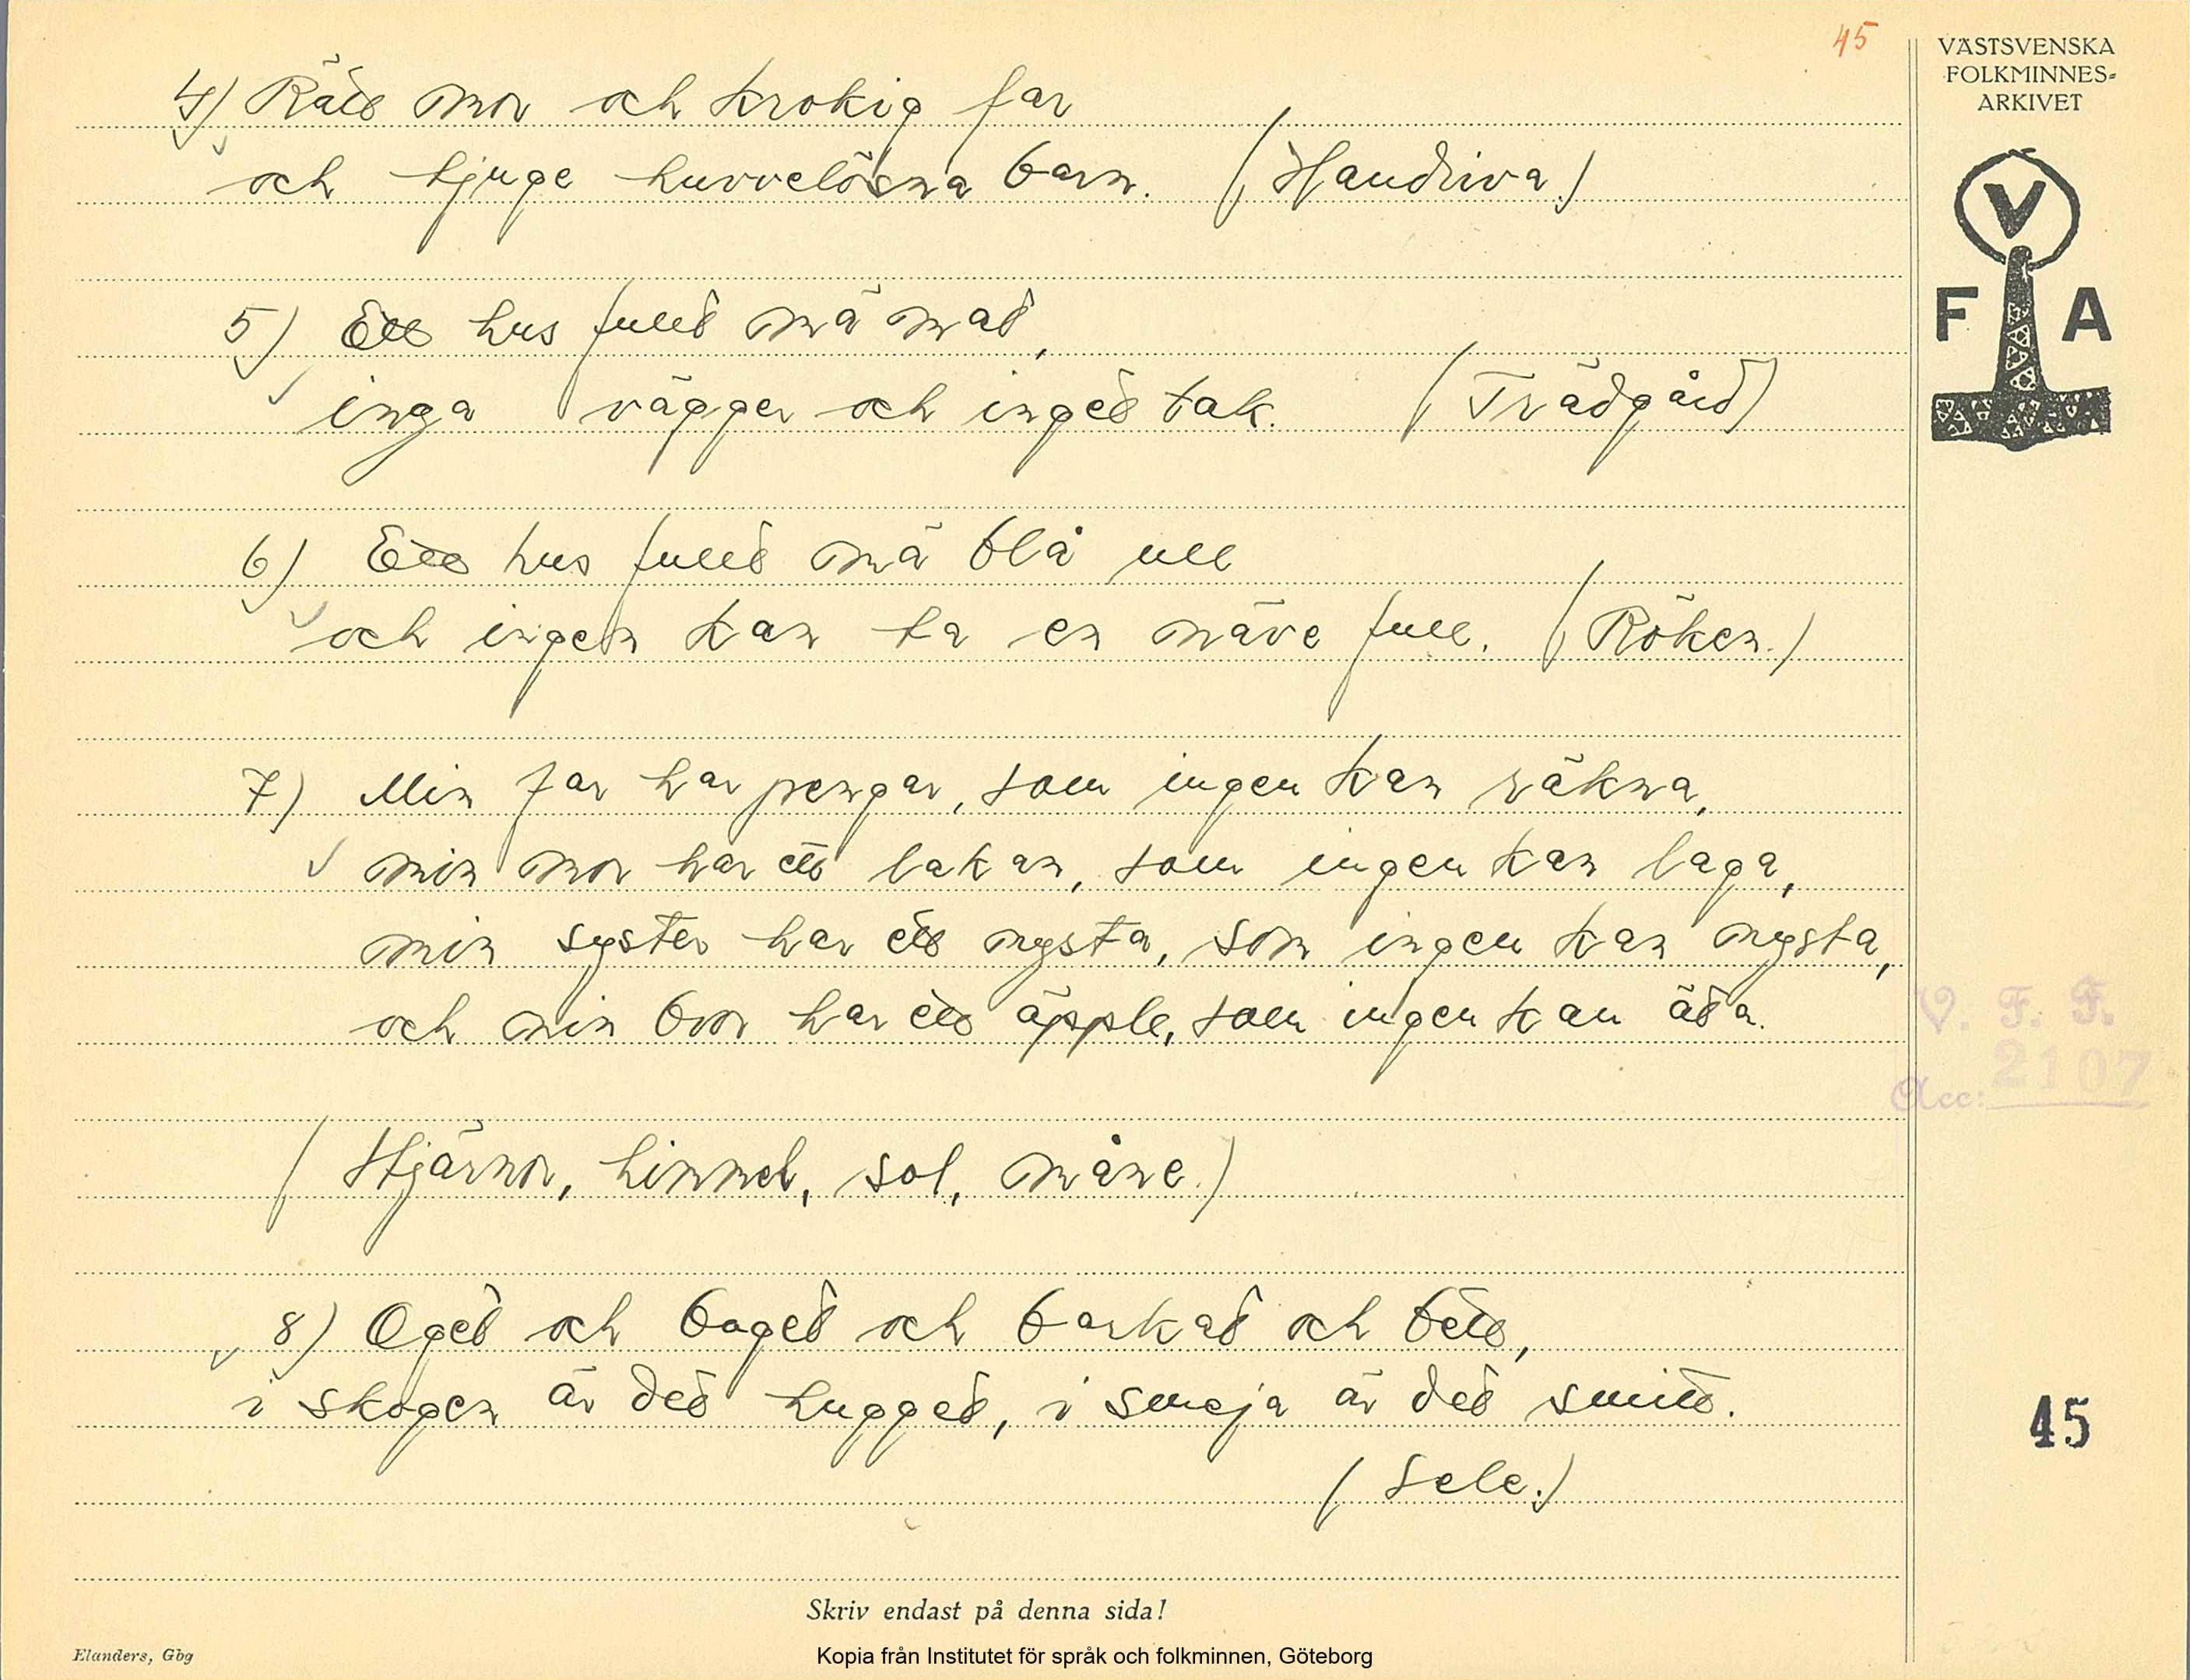 45
VÄSTSVENSKA
FOLKMINNES=
ARKIVET
V
F A
4) Rätt mor och krokig far
och tjuge huvvelösna barn. (Handriva.)
5) Ett hus fullt mä mat,
inga väggar och inget tak. (Trädgård)
6) Ett hus fullt mä blå ull
och ingen kan ta en näve full. (Röken.)
7) Min far har pengar, som ingen kan räkna,
min mor har ett lakan, som ingen kan laga,
min syster har ett nysta, som ingen kan nysta,
och min bror har ett äpple, som ingen kan äta.
V. F. F.
Acc: 2107
(Stjärnor, himmel, sol, måne.)
8) Oget och boget och barkat och bett,
i skogen är det hugget, i smeja är det smitt.
45
(Sele.)
Skriv endast på denna sida!
Elanders, Gbg
Kopia från Institutet för språk och folkminnen, Göteborg